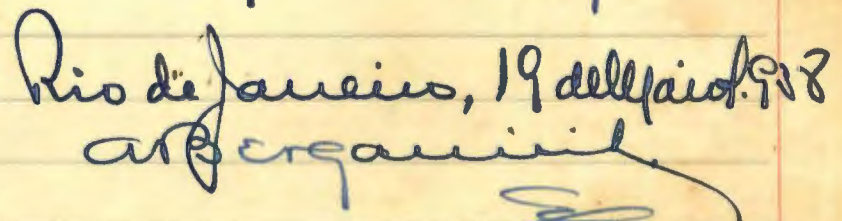 Rio de Janeiro, 19 de Maio 1.958
A Bergamini